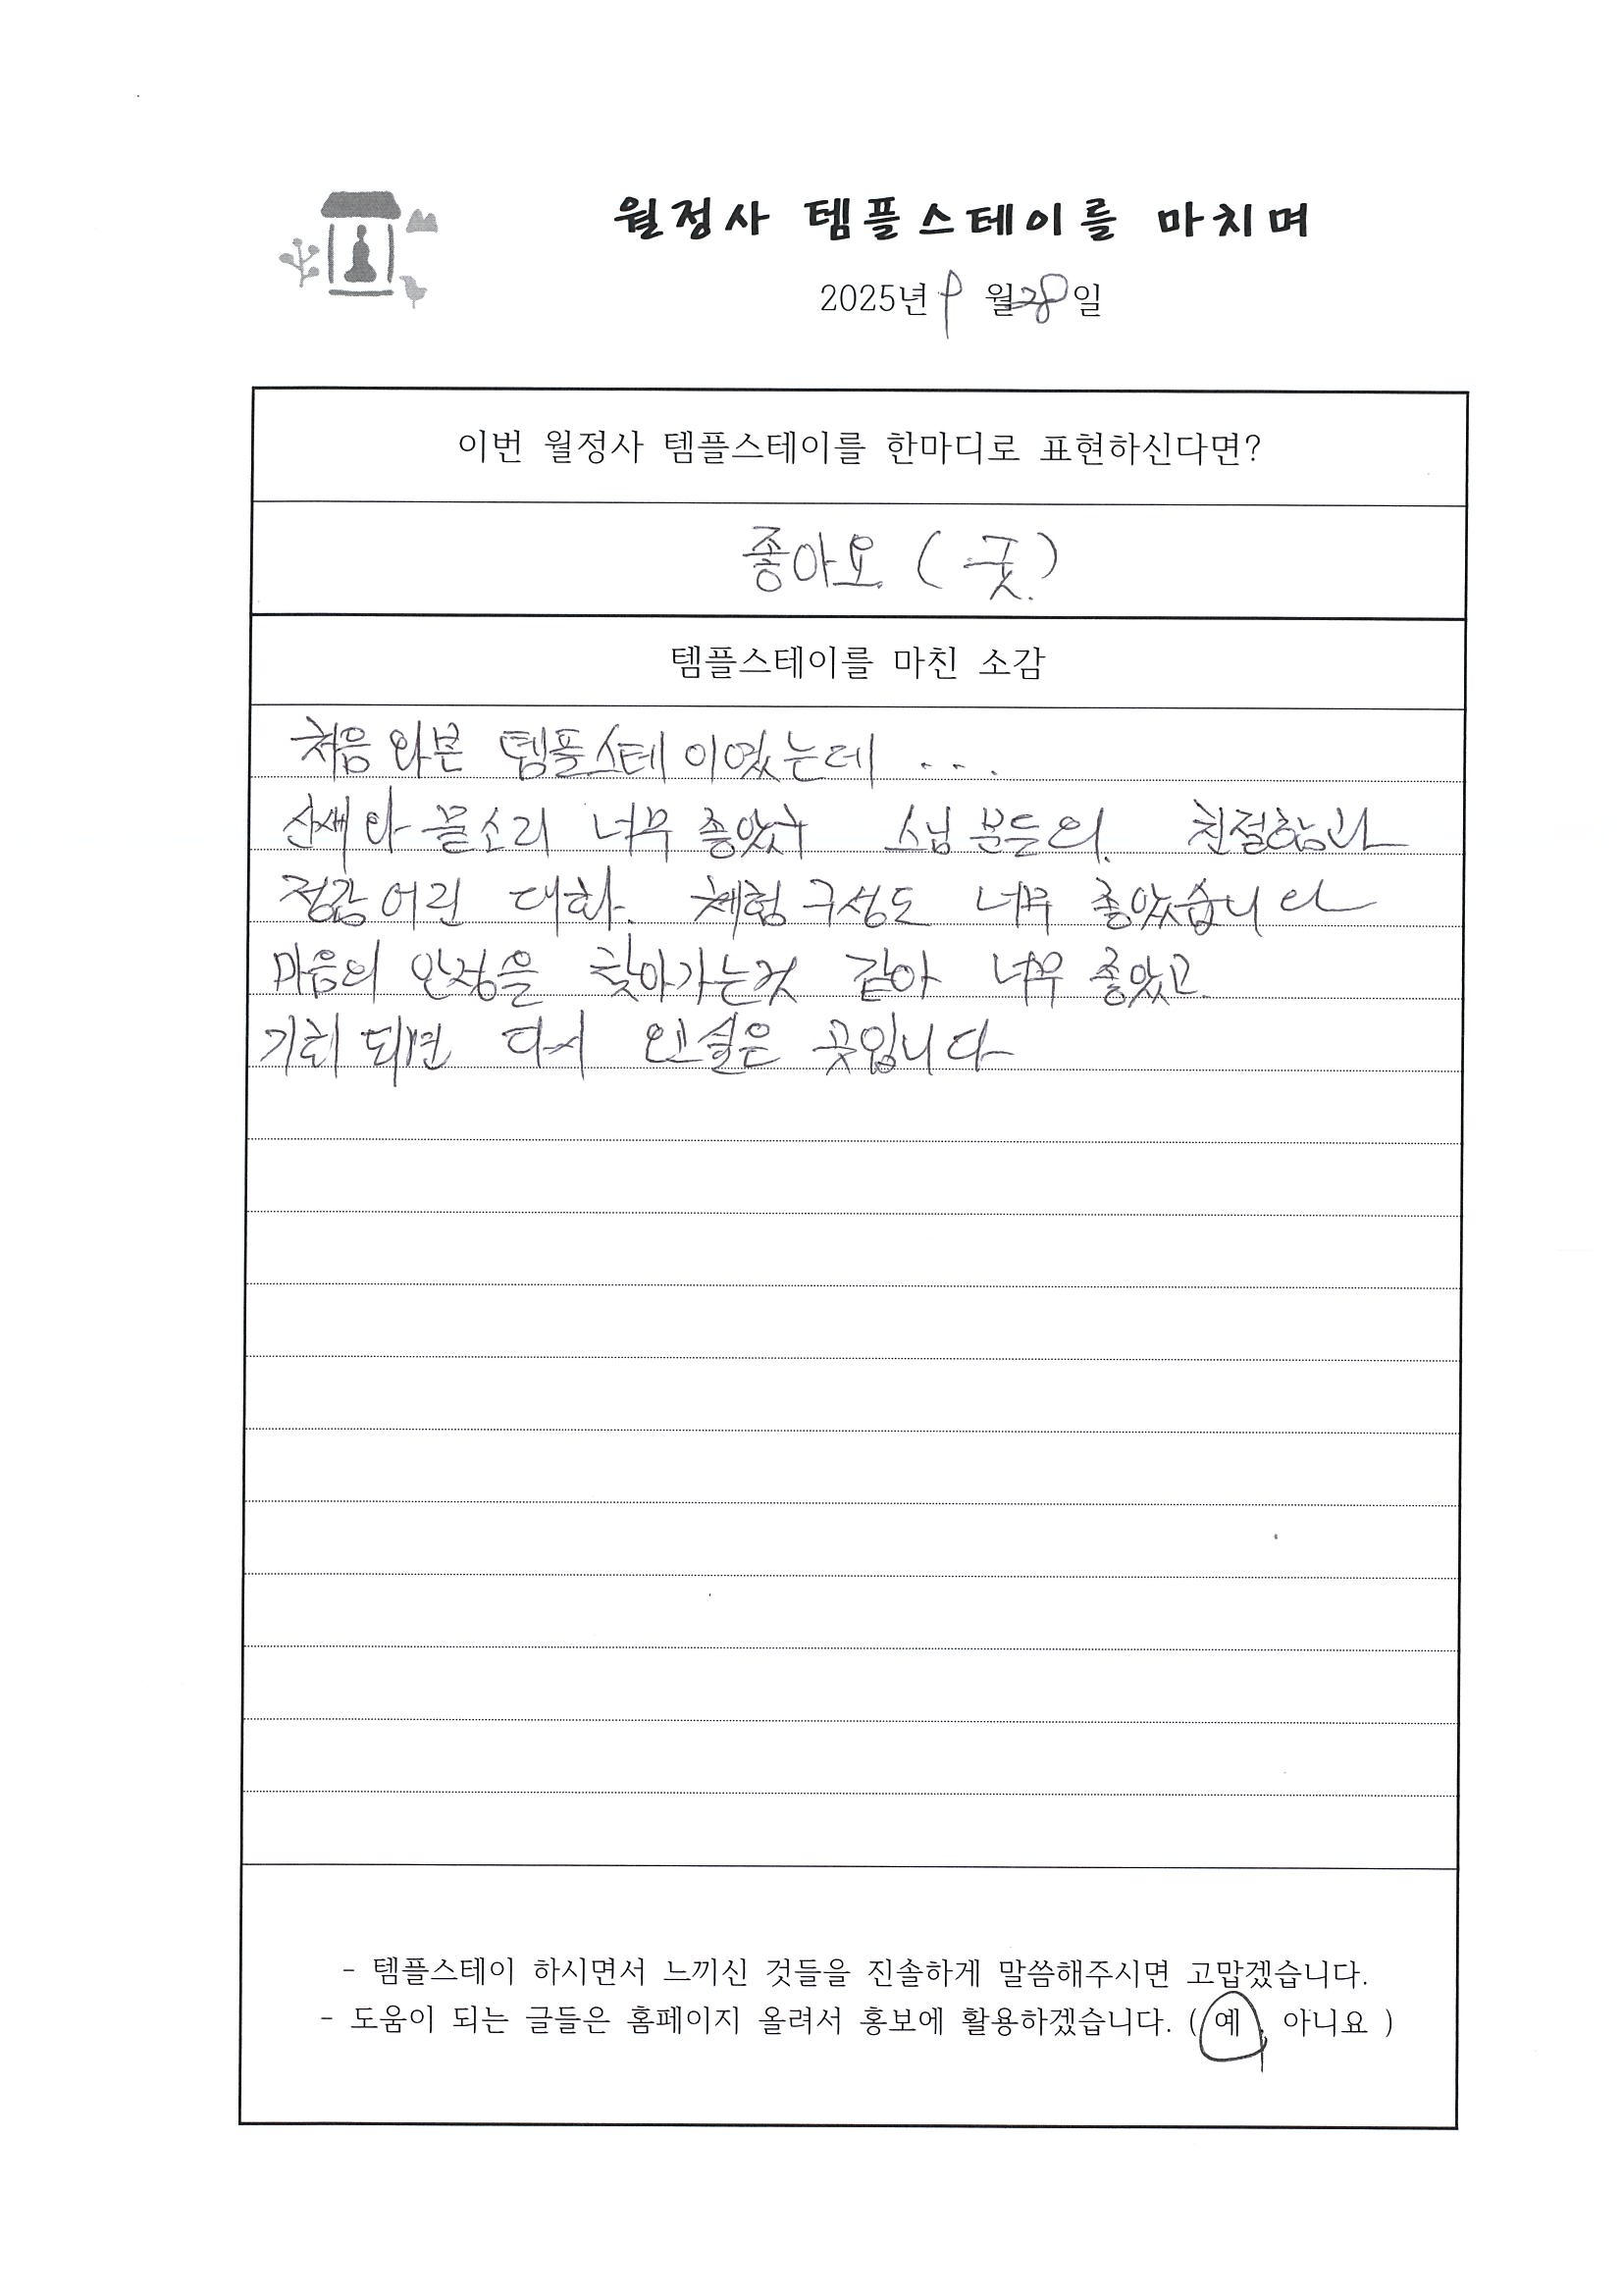 월정사 템플스테이를 마치며
2025년 9월 28일
이번 월정사 템플스테이를 한마디로 표현하신다면?
좋아요 (굿.)
템플스테이를 마친 소감
처음 와본 템플스테이였는데 ...
산새와 물소리 너무 좋았구 스님분들의. 친절함과
정감어린 대화. 체험구성도 너무 좋았습니다
마음의 안정을 찾아가는것 같아 너무 좋았고.
기회되면 다시 오고싶은 곳입니다
- 템플스테이 하시면서 느끼신 것들을 진솔하게 말씀해주시면 고맙겠습니다.
- 도움이 되는 글들은 홈페이지 올려서 홍보에 활용하겠습니다. ( 예, 아니요 )